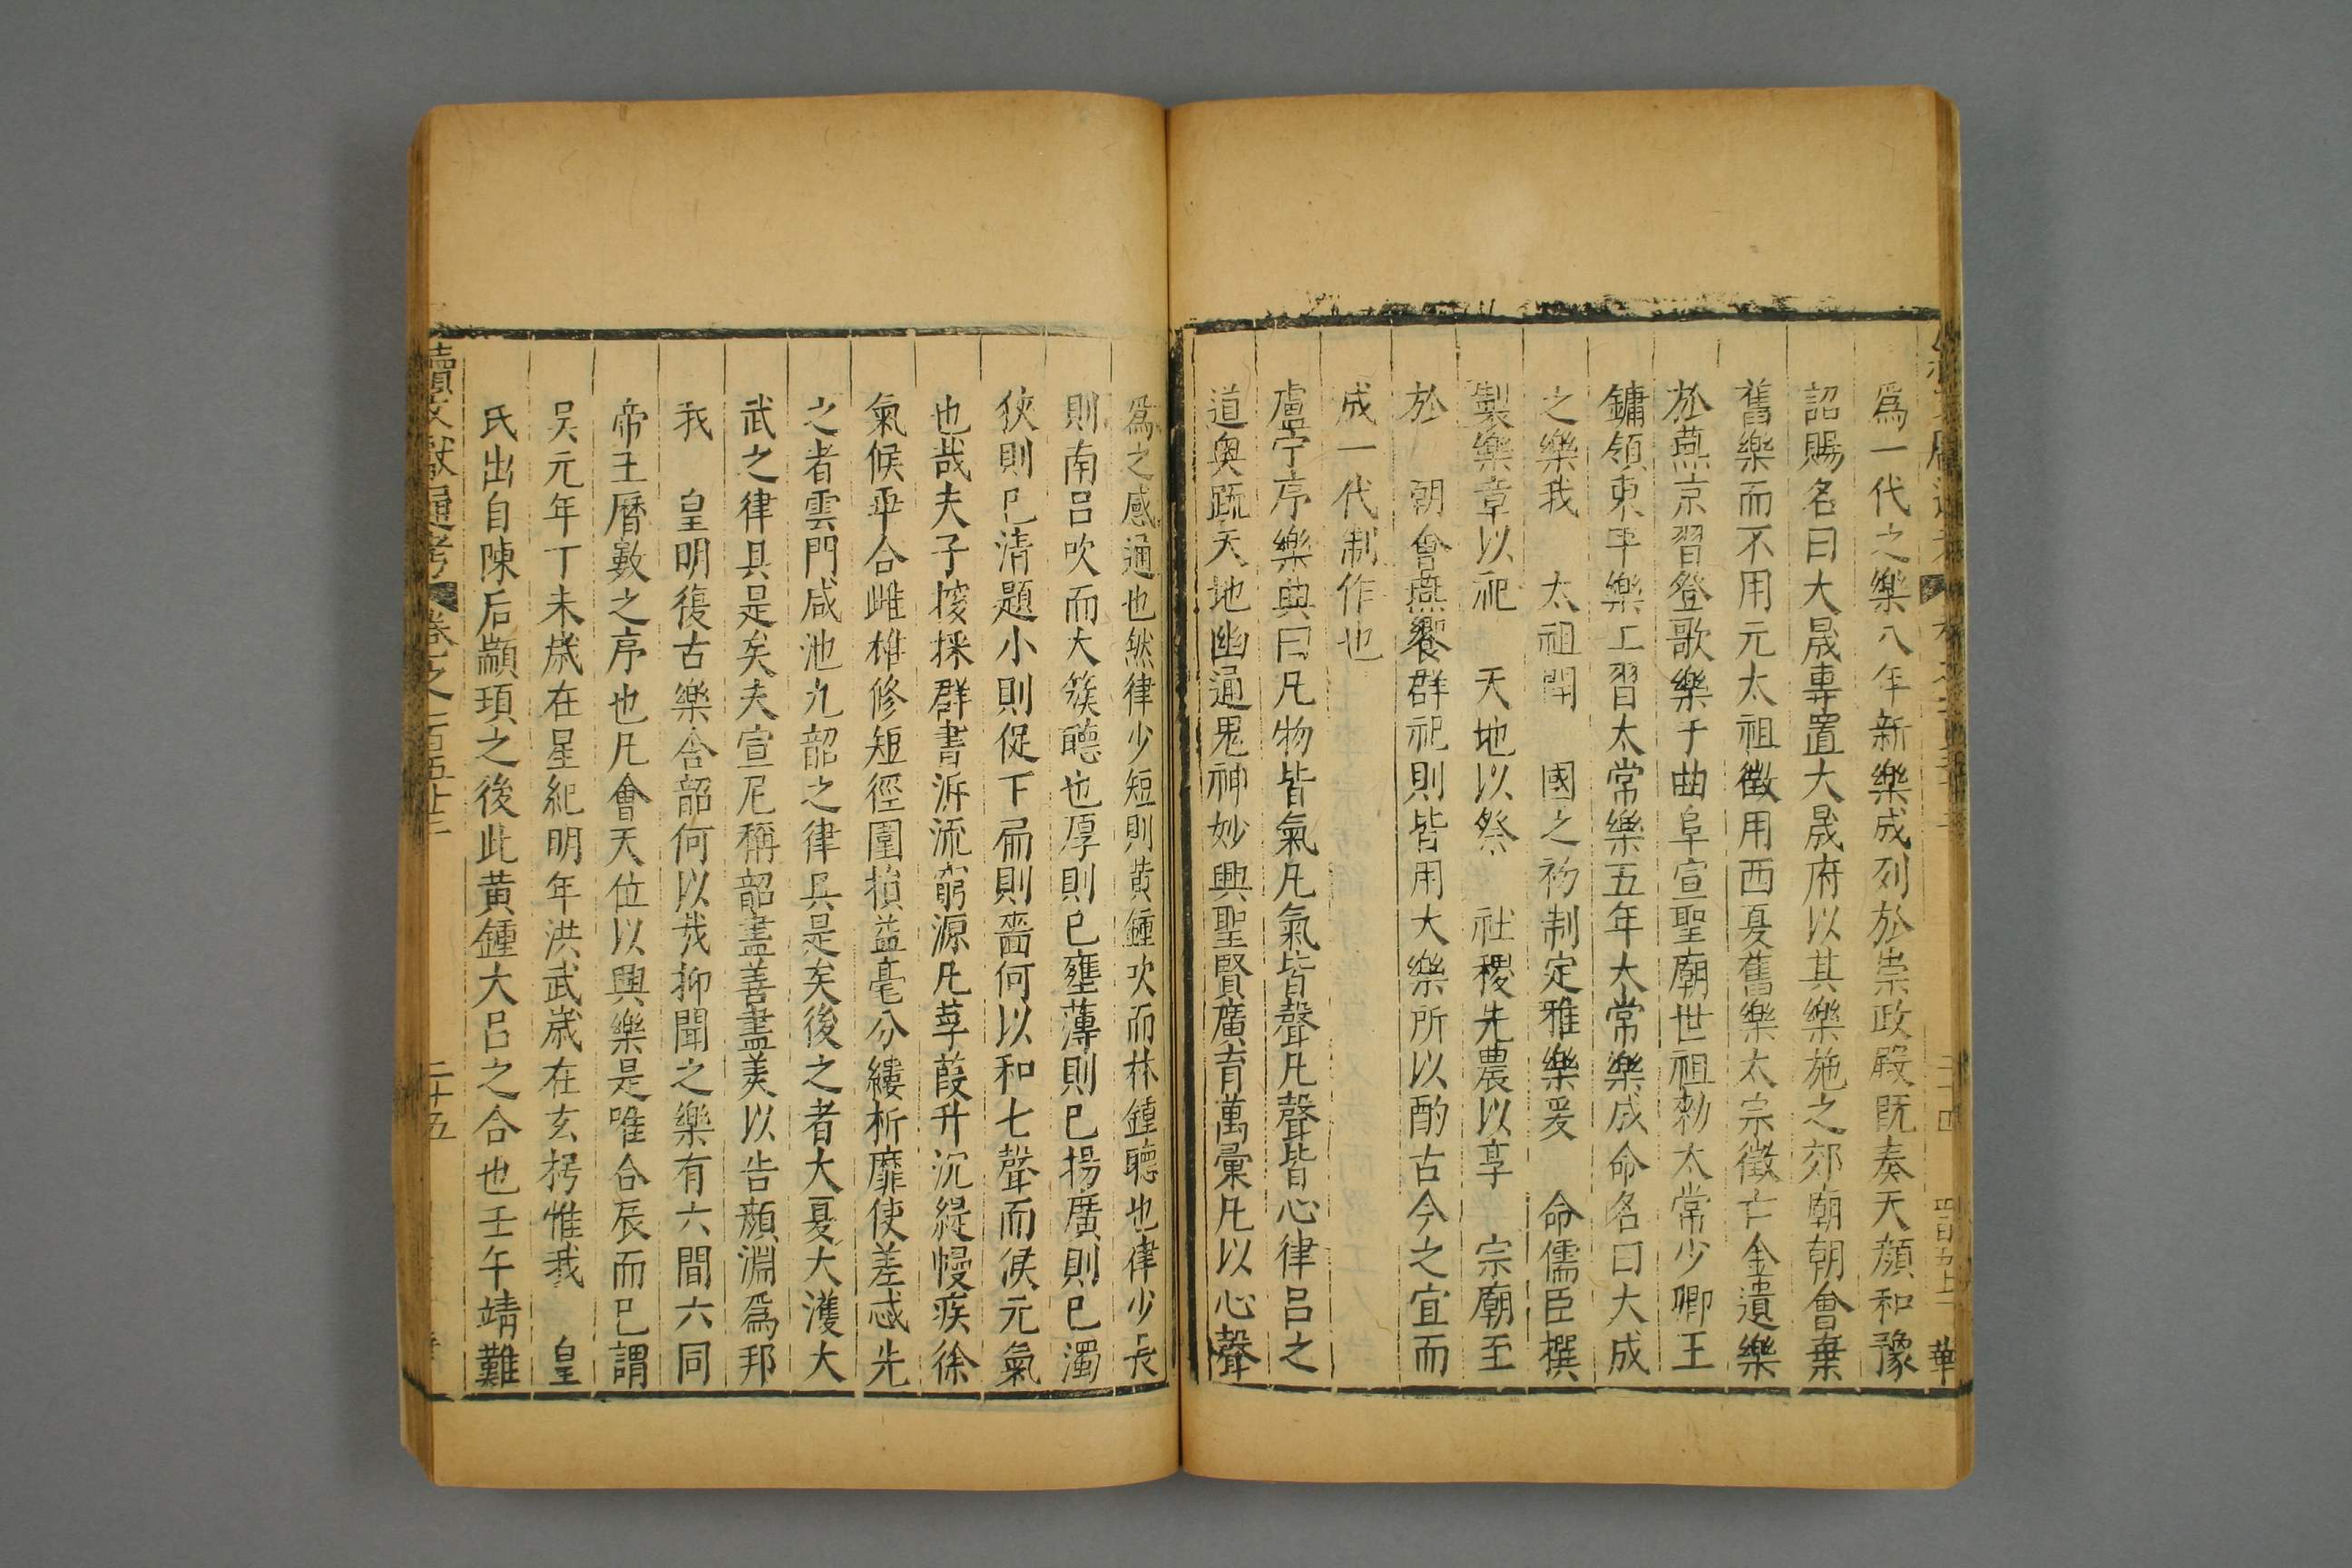 爲一代之樂八年新樂成列於崇政殿既奏天顔和豫
詔賜名曰大晟專置大晟府以其樂施之郊廟朝會棄
舊樂而不用元太祖徵用西夏舊樂太宗徵亡金遺樂
於燕京習登歌樂于曲阜宣聖廟世祖勑太常少卿王
鏞領東平樂工習太常樂五年太常樂成命名曰大成
之樂我 太祖開 國之初制定雅樂爰 命儒臣撰
製樂章以祀 天地以祭 社稷先農以享 宗廟至
於 朝會燕饗群祀則皆用大樂所以酌古今之宜而
成一代制作也
盧宁序樂典曰凡物皆氣凡氣皆聲凡聲皆心律呂之
道奥蹠天地幽通鬼神妙興聖賢廣育萬彙凡以心聲
爲之感通也然律少短則黄鍾吹而林鍾聽也律少長
則南呂吹而大簇聽也厚則已壅薄則已揚廣則已濁
狹則已清題小則促下扁則嗇何以和七聲而候元氣
也哉夫子搜採群書泝流窮源凡莩葭升沉緹幔疾徐
氣候乖合雌雄修短徑圍損益毫分縷析靡使差忒先
之者雲門咸池九韶之律具是矣後之者大夏大濩大
武之律具是矣夫宣尼稱韶盡善盡美以告顔淵爲邦
我 皇明復古樂舍韶何以哉抑聞之樂有六間六同
帝王曆數之序也凡會天位以興樂是唯合辰而已謂
吴元年丁未歲在星紀明年洪武歲在玄枵惟我 皇
氏出自陳后顓頊之後此黄鍾大呂之合也壬午靖難
續文獻通考 卷之一百五十三
二十五